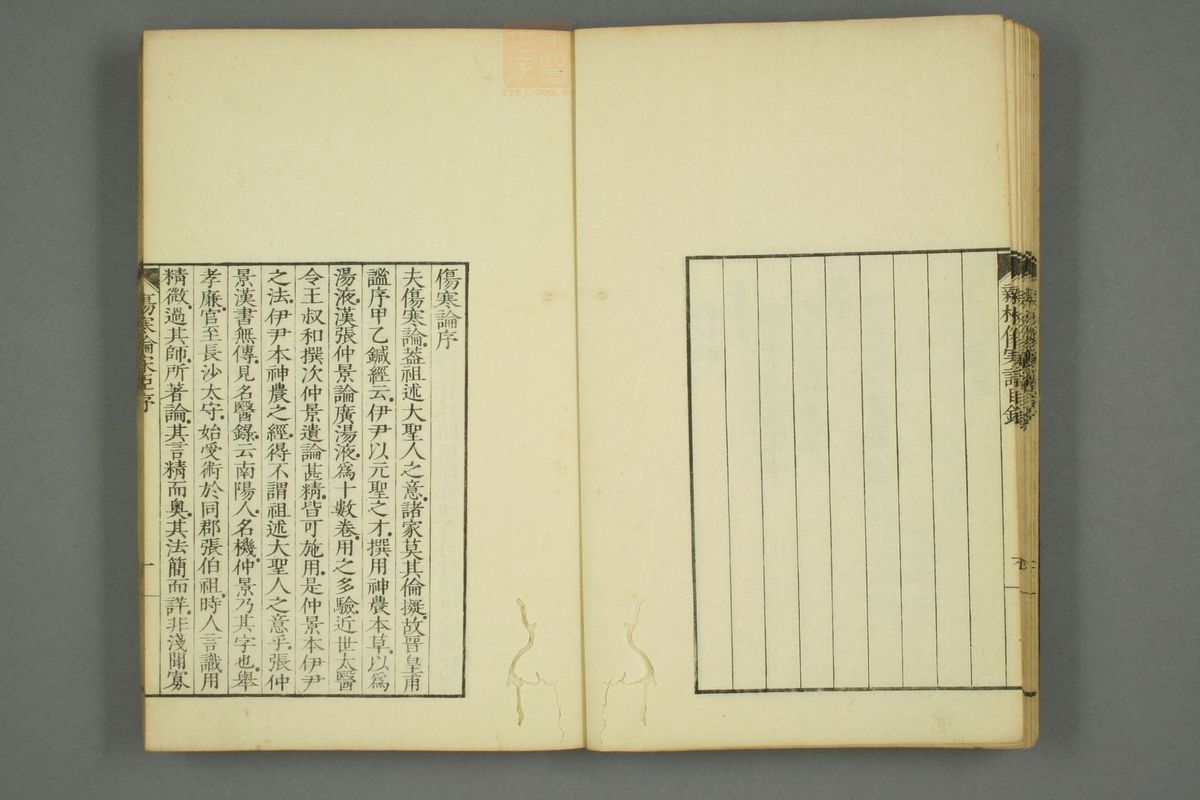 傷寒論序
夫傷寒論蓋祖述大聖人之意諸家莫其倫擬故晉皇甫
謐序甲乙鍼經云伊尹以元聖之才撰用神農本草以爲
湯液漢張仲景論廣湯液爲十數卷用之多驗近世太醫
令王叔和撰次仲景遺論甚精皆可施用是仲景本伊尹
之法伊尹本神農之經得不謂祖述大聖人之意乎張仲
景漢書無傳見名醫錄云南陽人名機仲景乃其字也舉
孝廉官至長沙太守始受術於同郡張伯祖時人言識用
精微過其師所著論其言精而奧其法簡而詳非淺聞寡
傷寒論 序
一